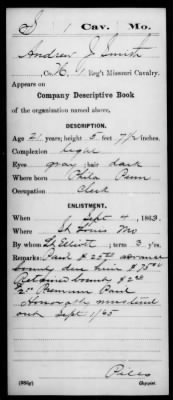 S | 1 | Cav. | Mo.
Andrew J Smith
, Co. K, 1 Reg't Missouri Cavalry.
Appears on
Company Descriptive Book
of the organization named above.
DESCRIPTION.
Age 21 years; height 5 feet 7 1/2 inches.
Complexion light
Eyes gray; hair dark
Where born Phila Penn
Occupation Clerk
ENLISTMENT.
When Sept 4, 1863.
Where St Louis Mo
By whom Elliott; term 3 y'rs.
Remarks: Paid $25 00 advance
bounty due him $75 00
Retained bount
2 00 Premium Paid
Honorably mustered
out Sept 1/65
(383g) Copyist.